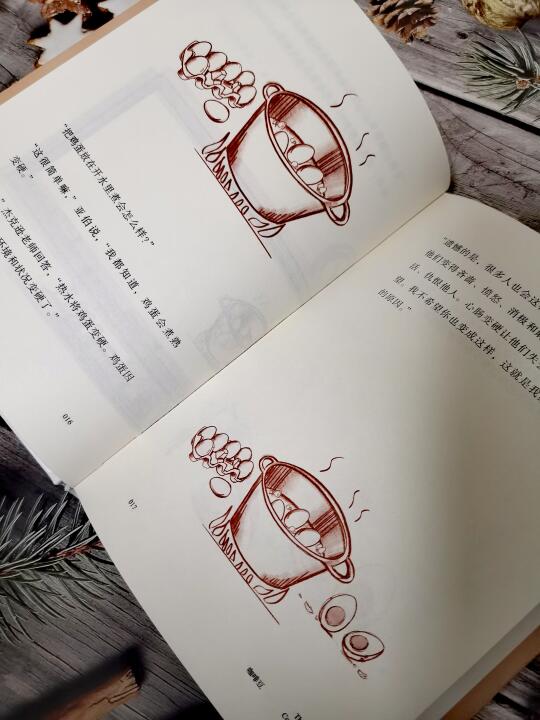 “把鸡蛋放在开水里煮会怎么样？”
“这很简单嘛，”亚伯说，“我都知道，鸡蛋会煮熟
变硬。”
”杰克逊老师回答，“热水将鸡蛋变硬。鸡蛋因
环境和状况变硬了。”
016
“遗憾的是，很多人也会这
他们变得吝啬、愤怒、消极和
活，仇恨他人。心肠变硬让他们失
望。我不希望你也变成这样，这就是我
的原因。”
017
咖啡豆
Th
Co